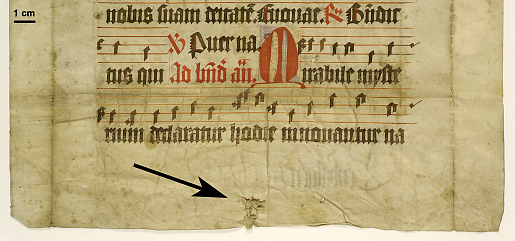 1 cm
nobis suam deitatē. Euouae. R̃. Bn̄dic
V̄ Puer na
tus qui Ad bn̄d an̄. Mirabile myste
rium declaratur hodie innouantur na